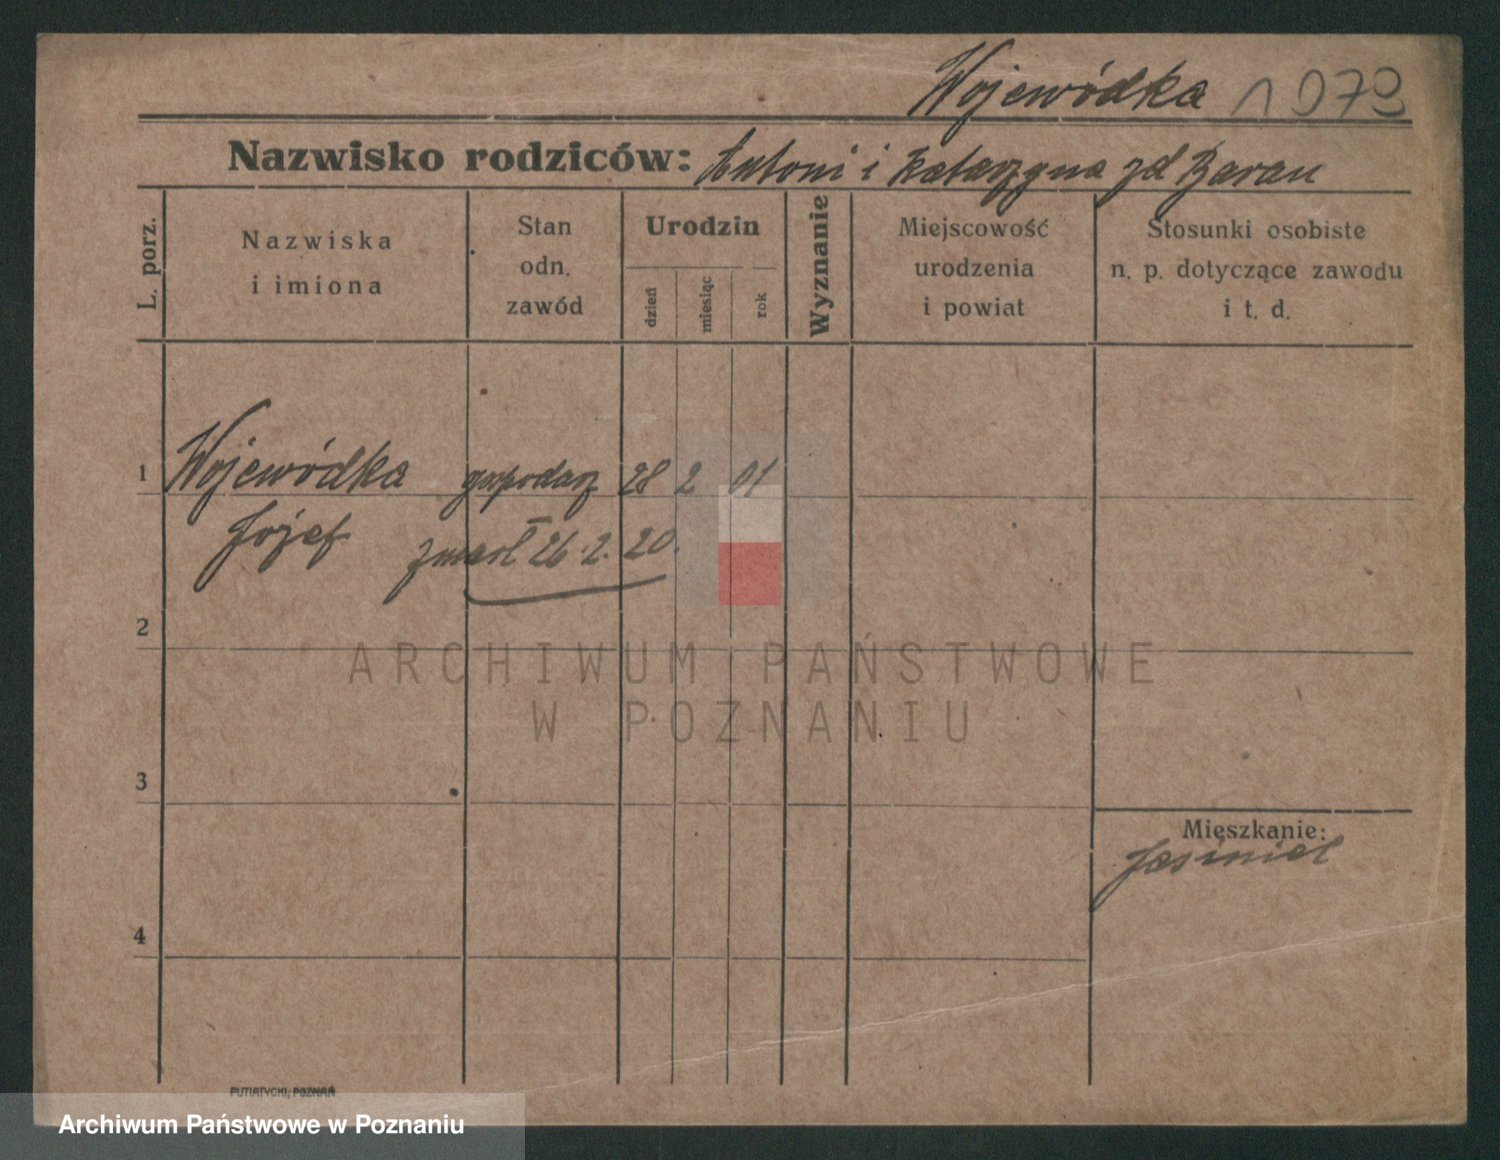 Wojewódka 1079
Nazwisko rodziców: Antoni i Katarzyna zd Baran
L. porz.
Nazwiska
i imiona
Stan
odn.
zawód
Urodzin
dzień
miesiąc
rok
Wyznanie
Miejscowość
urodzenia
i powiat
Stosunki osobiste
n. p. dotyczące zawodu
i t. d.
1 Wojewódka gospodarz 28 2 01
Józef zmarł 26.2.20.
2
ARCHIWUM PAŃSTWOWE
W POZNANIU
3
Mieszkanie:
4
PUTIATYCKI, POZNAŃ
Archiwum Państwowe w Poznaniu